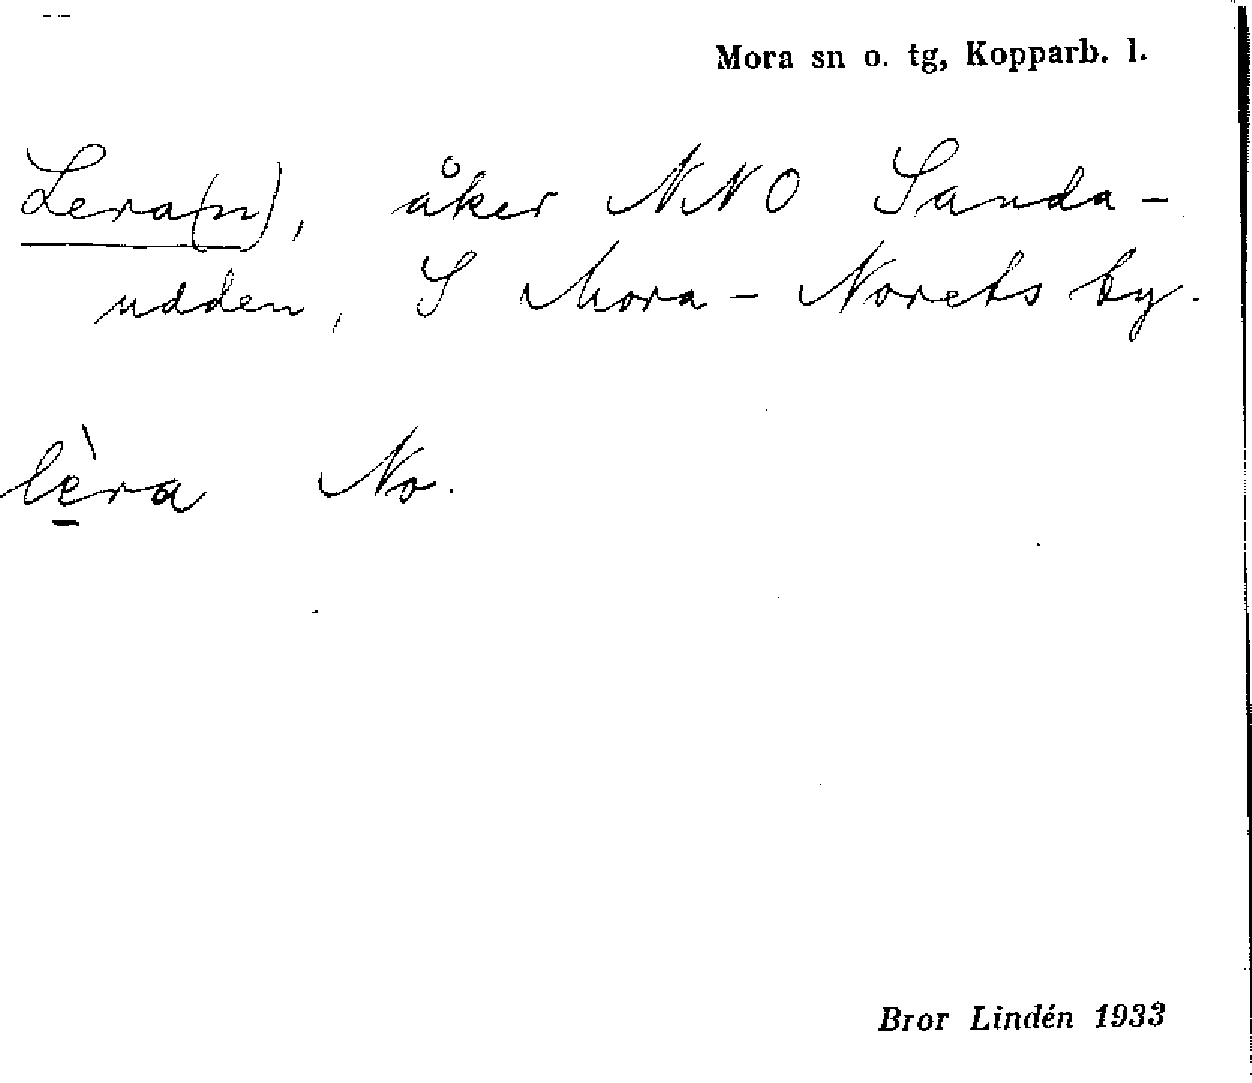 Mora sn o. tg, Kopparb. l.
Lera(n), åker NNO Sanda-
udden, S Mora-Norets by.
lèra No.
Bror Lindén 1933